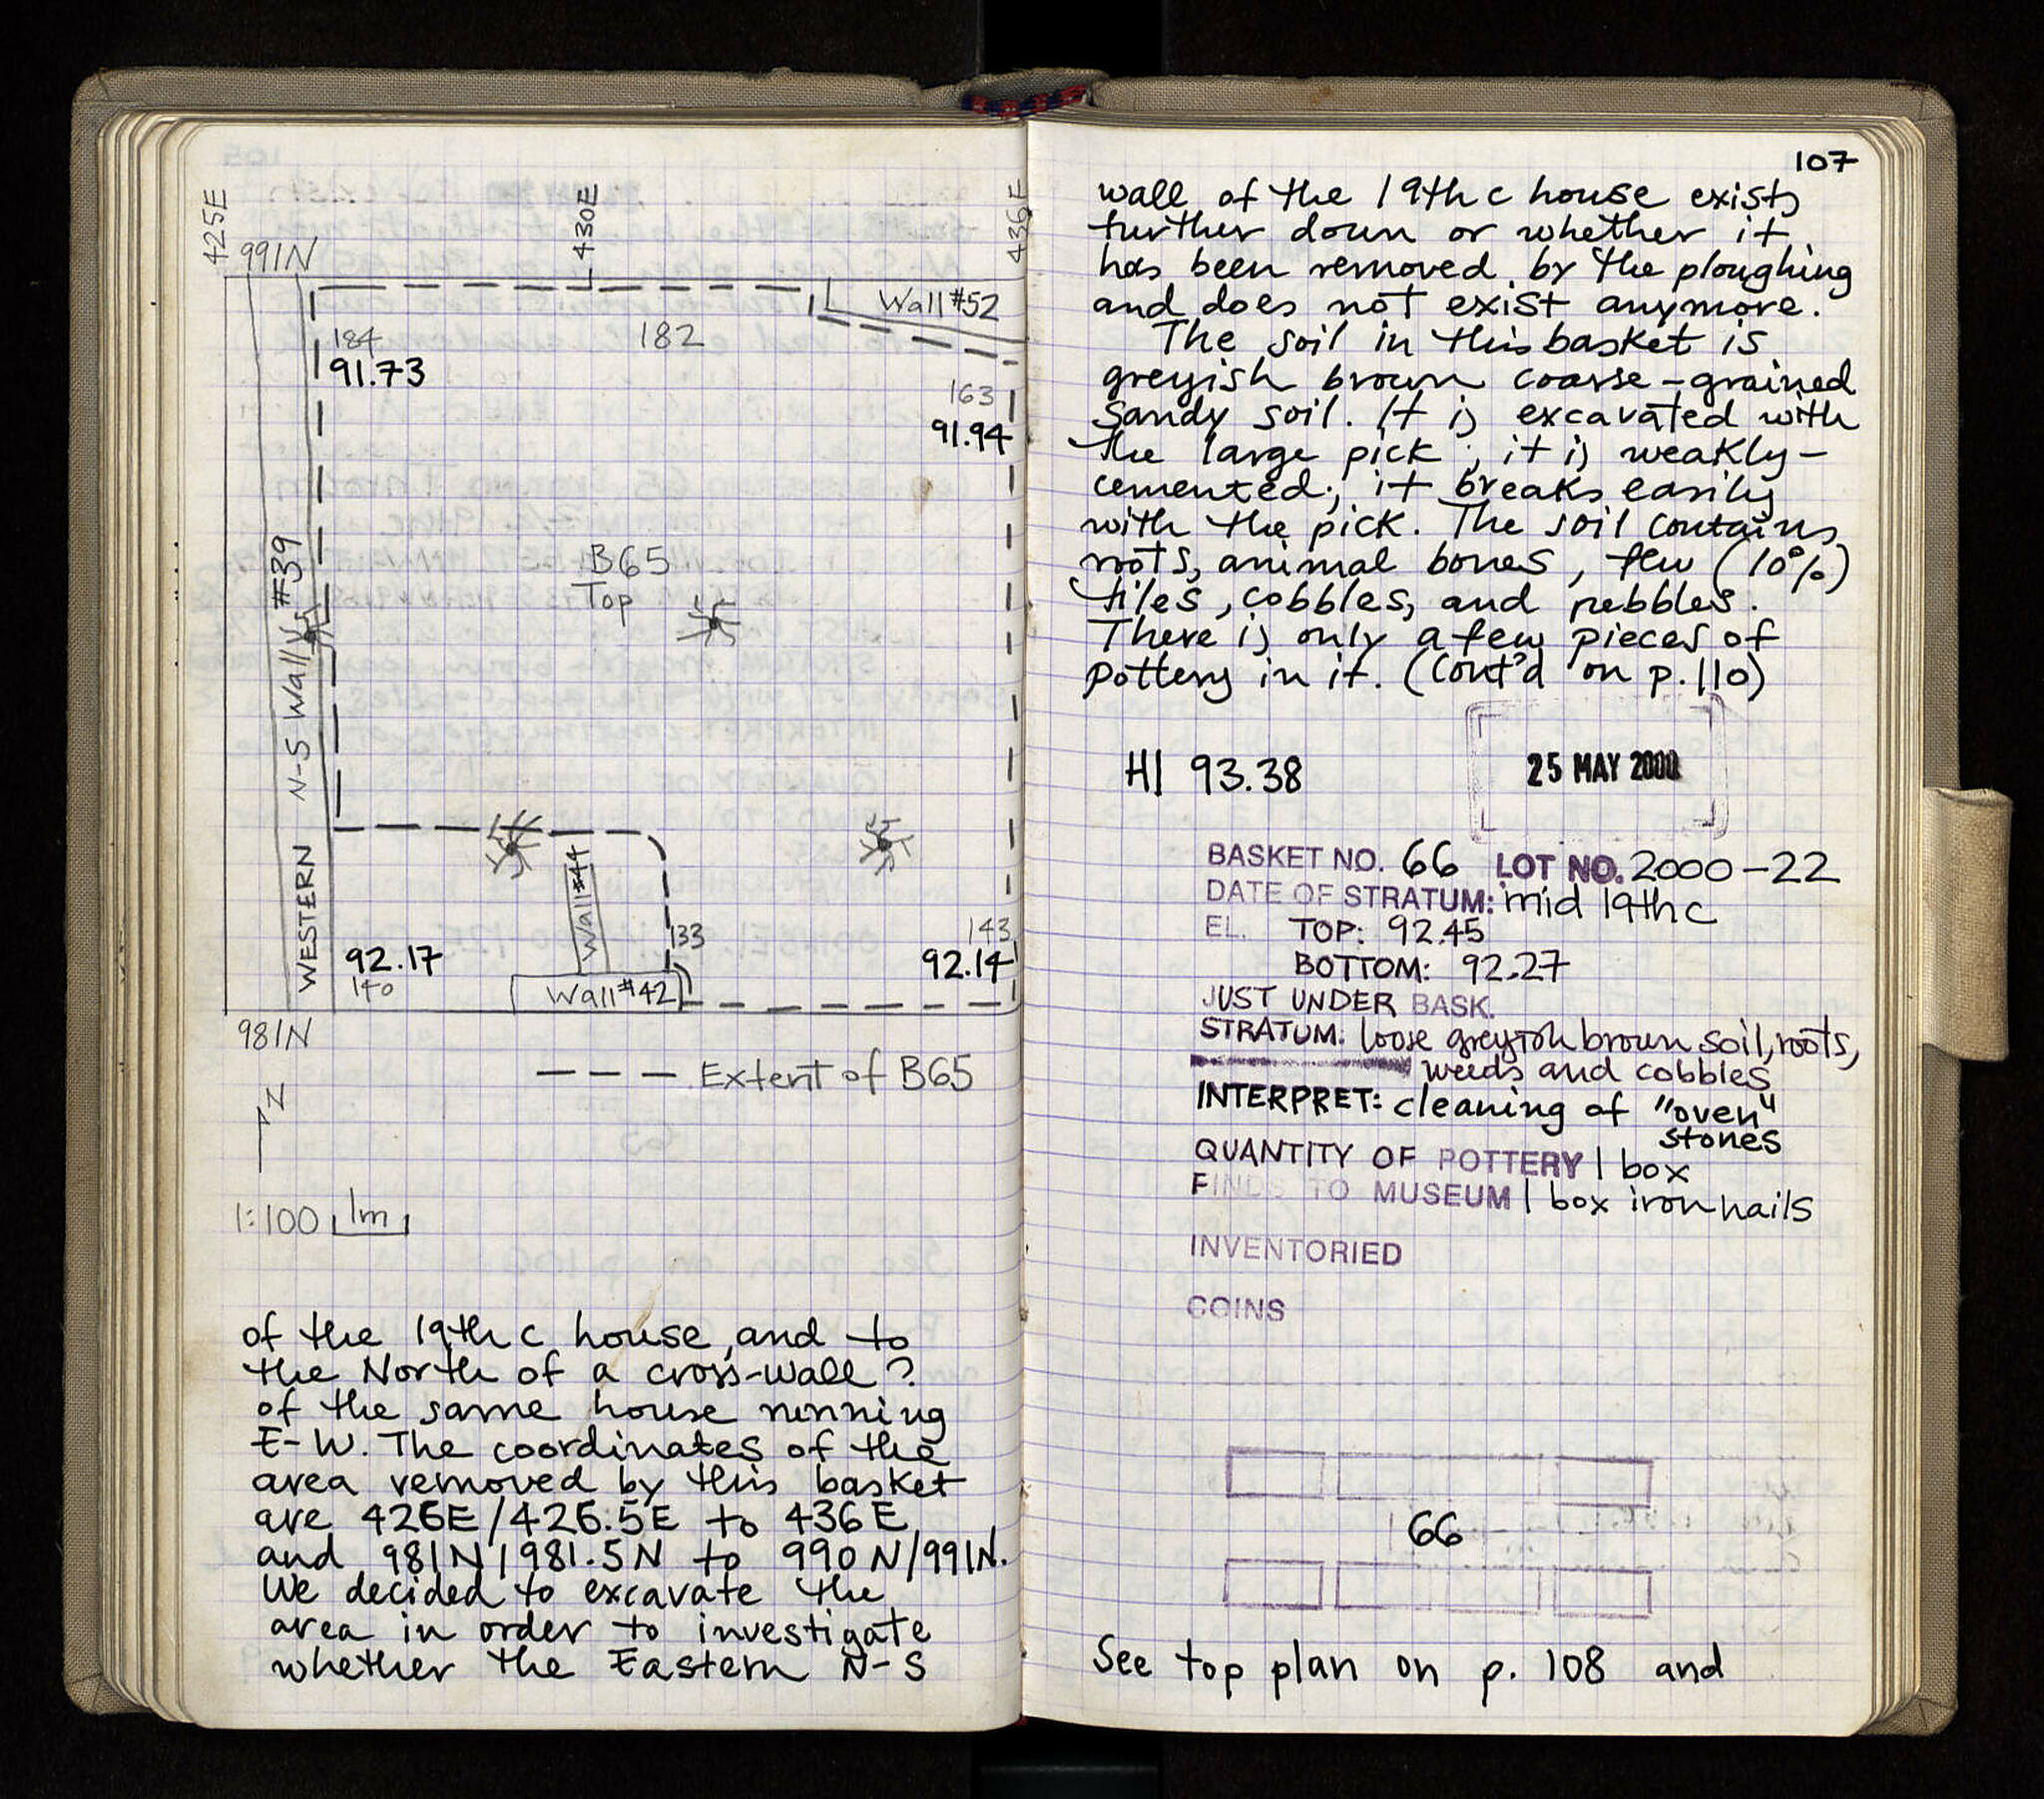 425E
430E
436E
991N
Wall #52
184
91.73
182
163
91.94
B65
Top
WESTERN N-S Wall #39
Wall #44
133
143
92.17
140
92.14
Wall #42
981N
--- Extent of B65
N
1:100 1m
of the 19th c house, and to
the North of a cross-wall?
of the same house running
E-W. The coordinates of the
area removed by this basket
are 426E/426.5E to 436E
and 981N/981.5N to 990N/991N.
We decided to excavate the
area in order to investigate
whether the Eastern N-S
107
wall of the 19th c house exists
further down or whether it
has been removed by the ploughing
and does not exist anymore.
The soil in this basket is
greyish brown coarse-grained
sandy soil. It is excavated with
the large pick; it is weakly-
cemented; it breaks easily
with the pick. The soil contains
roots, animal bones, few (10%)
tiles, cobbles, and pebbles.
There is only a few pieces of
pottery in it. (Cont'd on p.110)
HI 93.38
25 MAY 2000
BASKET NO. 66 LOT NO. 2000-22
DATE OF STRATUM: mid 19th c
EL. TOP: 92.45
BOTTOM: 92.27
JUST UNDER BASK.
STRATUM: loose greyish brown soil, roots,
weeds and cobbles
INTERPRET: cleaning of "oven"
stones
QUANTITY OF POTTERY 1 box
FINDS TO MUSEUM 1 box iron nails
INVENTORIED
COINS
66
See top plan on p. 108 and